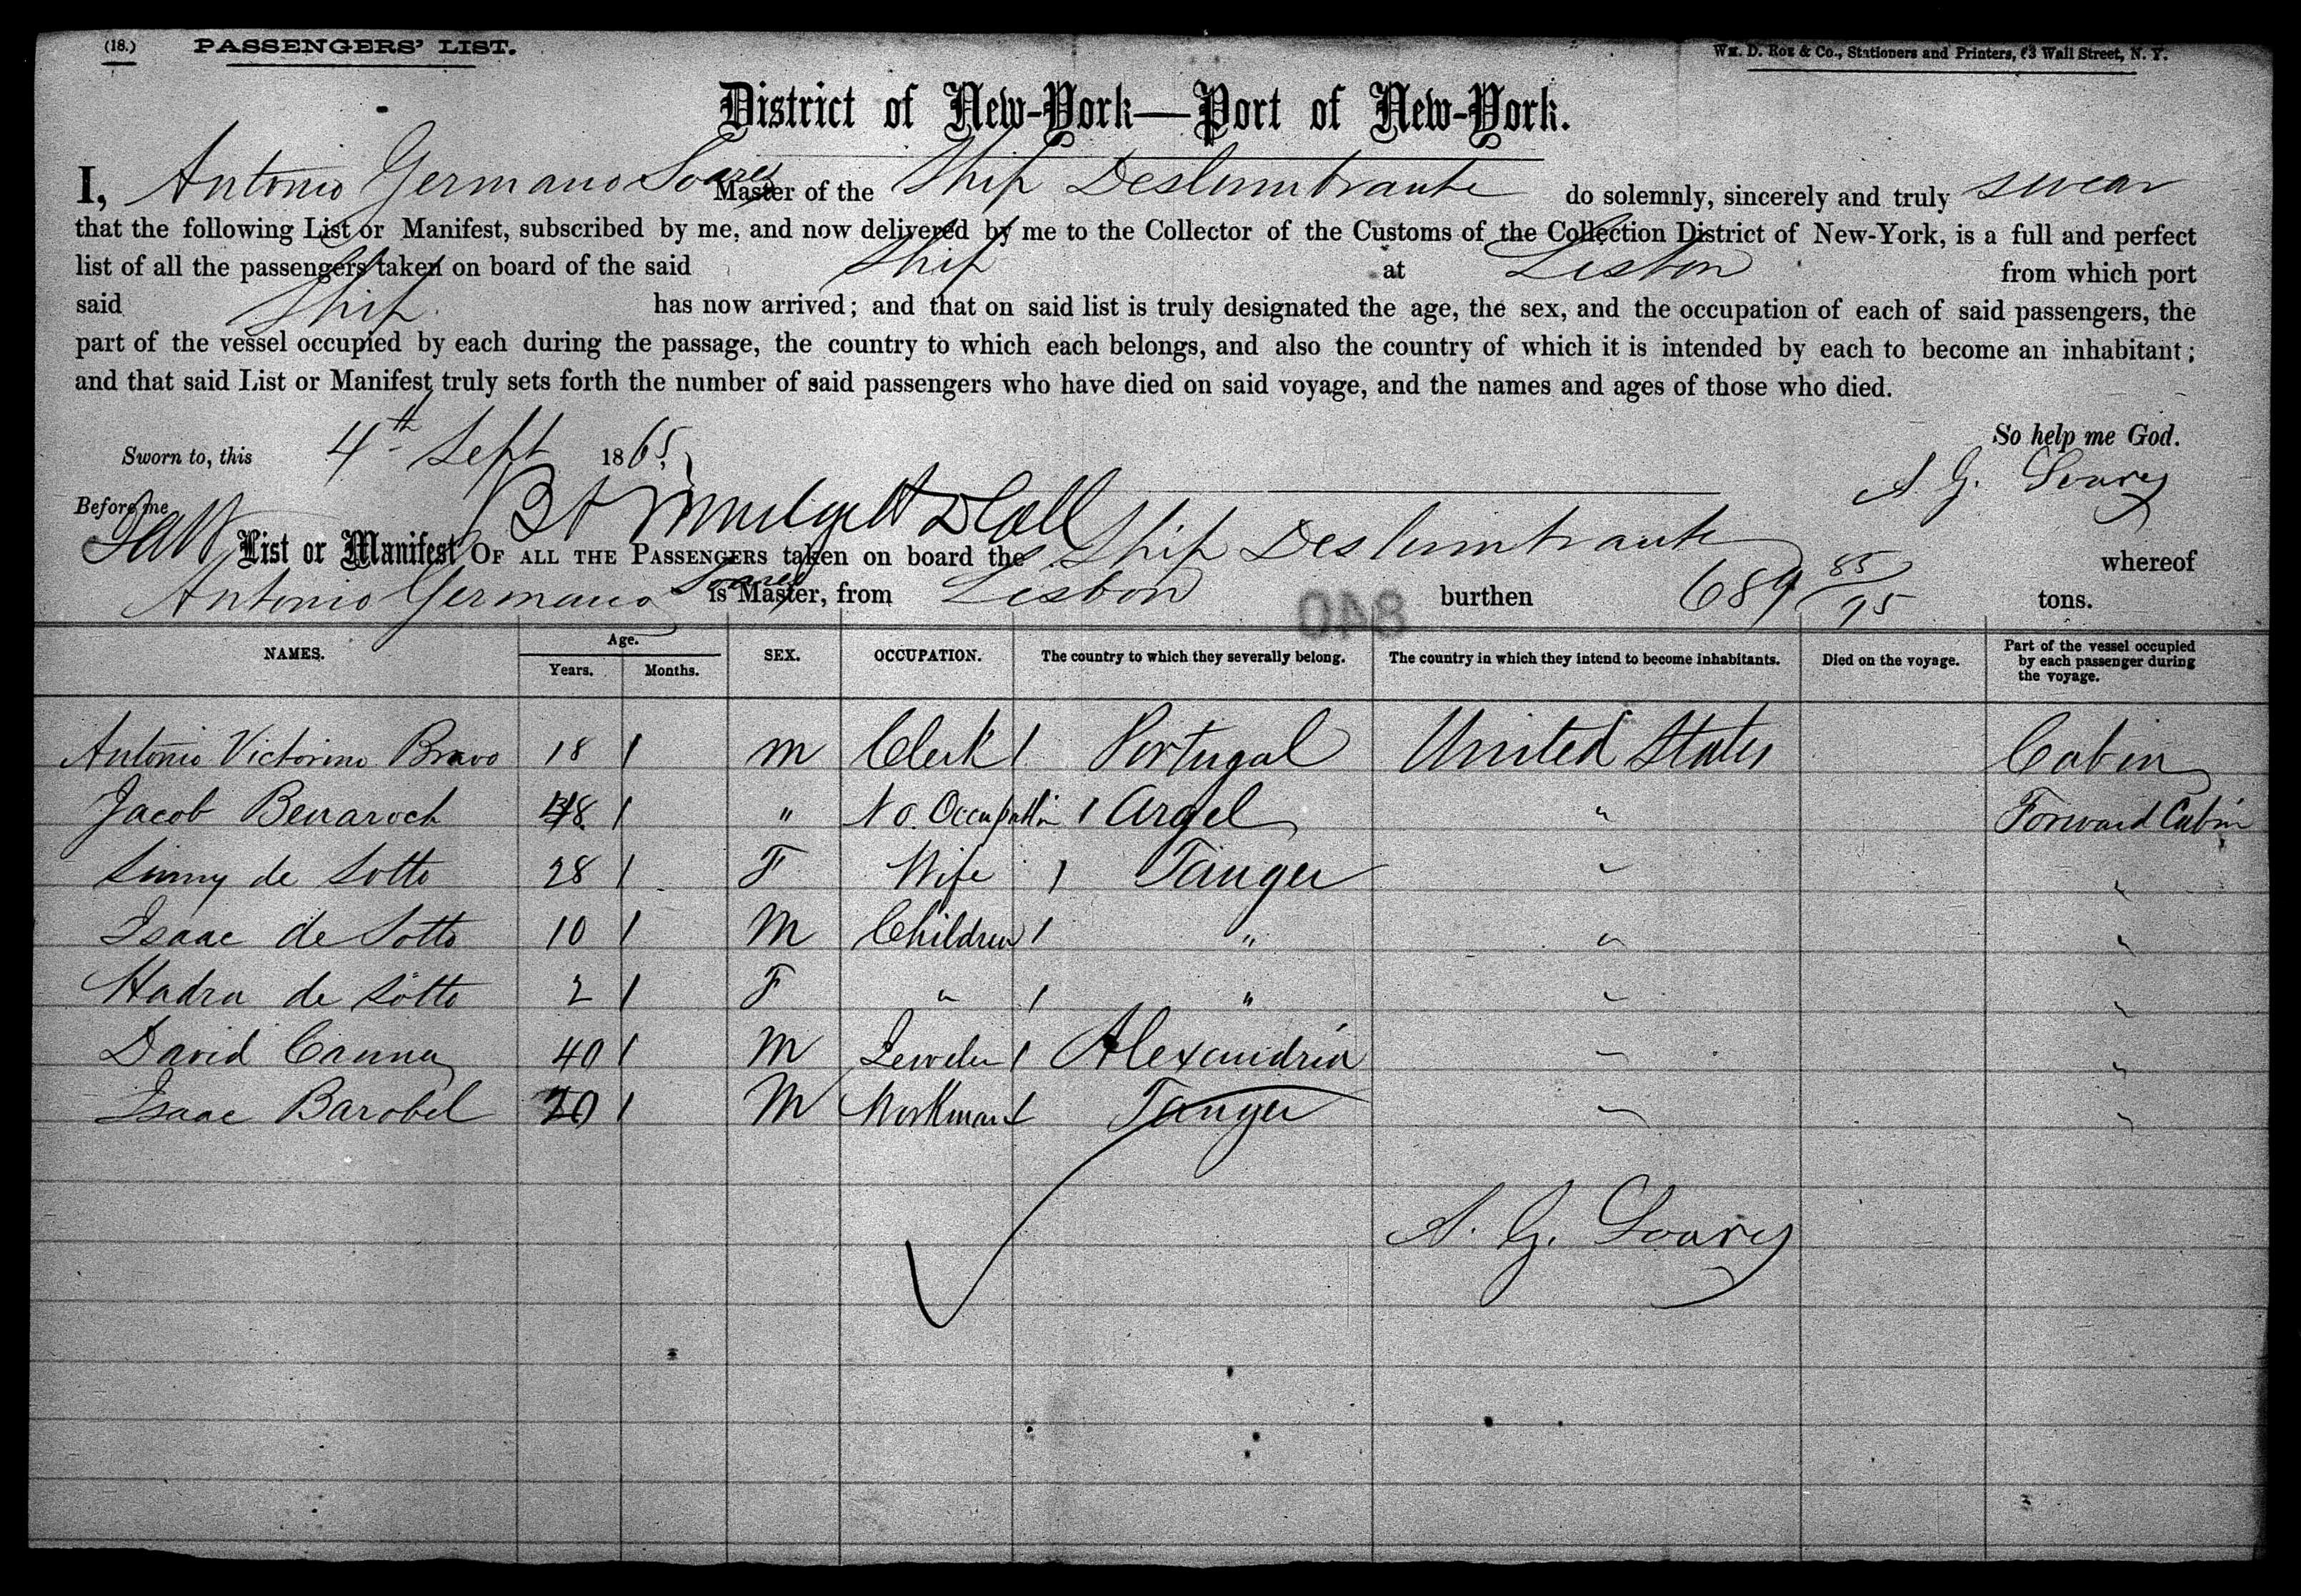 (18.) PASSENGERS' LIST. Wm. D. Roe & Co., Stationers and Printers, 63 Wall Street, N. Y.
District of New-York—Port of New-York.
I, Antonio Germano Soares Master of the Ship Deslumbrante do solemnly, sincerely and truly swear
that the following List or Manifest, subscribed by me, and now delivered by me to the Collector of the Customs of the Collection District of New-York, is a full and perfect
list of all the passengers taken on board of the said Ship at Lisbon from which port
said Ship has now arrived; and that on said list is truly designated the age, the sex, and the occupation of each of said passengers, the
part of the vessel occupied by each during the passage, the country to which each belongs, and also the country of which it is intended by each to become an inhabitant;
and that said List or Manifest truly sets forth the number of said passengers who have died on said voyage, and the names and ages of those who died.
So help me God.
Sworn to, this 4th Sept 1865 A. G. Soares
Before me
List or Manifest OF ALL THE PASSENGERS taken on board the Ship Deslumbrante whereof
Antonio Germano Soares is Master, from Lisbon burthen 689 85/95 tons.
840
NAMES. Age. Years. Months. SEX. OCCUPATION. The country to which they severally belong. The country in which they intend to become inhabitants. Died on the voyage. Part of the vessel occupied by each passenger during the voyage.
Antonio Victorino Bravo 18 / M Clerk / Portugal United States Cabin
Jacob Benaroch 48 / " No. Occupation / Argel " Forward Cabin
Simmy de Sotto 28 / F Wife / Tanger " "
Isaac de Sotto 10 / M Children / " " "
Hadra de Sotto 2 / F " / " " "
David Canna 40 / M Jeweler / Alexandria " "
Isaac Barobel 20 / M Workman / Tanger " "
A. G. Soares